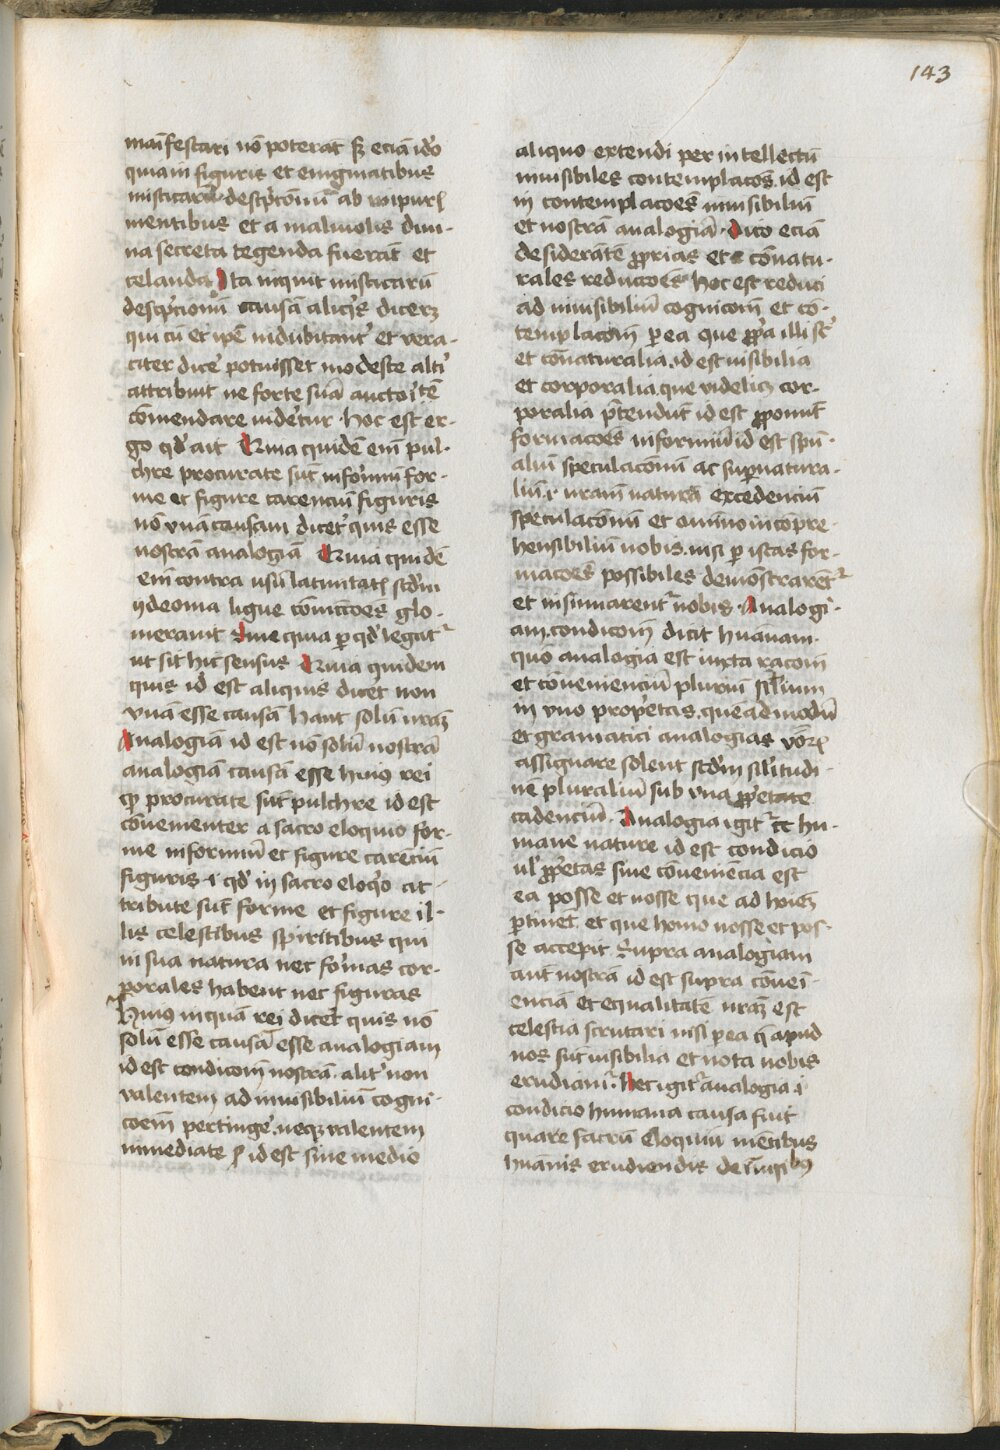 143
manifestari nō poterāt sʒ eciā idō
quia in figuris et enigmatibus
misticarū descpcionū ab impuris
mentibus et a malivolis divi-
na secreta tegenda fuerāt et
celanda Ita inquit misticarū
descpcionū causā aliqs dicere
qui cū et ipē indubitant' et vera-
citer dice' potuisset modeste alt'i
attribuit ne forte suā auctoītē
cōmendare videt'ur. hoc est er-
go qd' ait Quia quidē eni pul-
chre procurate sūt informiū for-
me et figure carenciū figuris
nō vnā causam dicet' quis esse
nostrā analogiā Quia quidē
eni contra usū latinitatis scdm
ydeoma ligue cōiuctioes glo-
meravit Sive quia p qd' legit'
ut sit hic sensus Quia quidem
quis id est aliquis dicet non
vnā esse causā hanc solū nrā
Analogiā id est nō solū nostrā
analogiā causā esse huius rei
qp procurate sūt pulchre id est
cōvenienter a sacro eloquio for-
me informiū et figure careciū
figuris .i. qd' in sacro eloq'o at-
tribute sūt forme et figure il-
lis celestibus spiritibus qui
in sua natura nec formas cor-
porales habent nec figuras
Huius inquā rei dicet quis nō
solū esse causā esse analogiam
id est condicōm nostrā. alit' non
valentem ad invisibiliū cogni-
cōem pertinge'. neqʒ valentem
inmediate id est sine medio
aliquo extendi per intellectū
invisibiles contemplacōs. id est
in contemplacoēs invisibiliū
et nostrā analogiā. Dico eciā
desiderātē pprias et cōnatu-
rales reductoēs hoc est reduci
ad invisibiliū cognicom̄ et cō-
templacom̄ p ea que ppa illi sūt
et cōnaturalia. id est visibilia
et corporalia. que videliʒ cor-
poralia p̄tendūt id est pponūt
formacoēs informiū id est spū-
aliū speculacōnū ac supnatura-
liū .i. nram naturā excedenciū
speculacōnū et omnino incōpre-
hensibiliū nobis. nisi p istas for-
macoēs possibiles demōstrarēt'
et insinuarent' nobis. Analogi-
am. condicōm dicit humanam.
quō analogia est iuxta racōm
et cōvenienciū pluriū siliium
in vno prop'etas. quēadmodū
et gramatici analogias v'borum
assignare solent scdm silitudi-
nē pluraliū sub vna pp'etate
cadenciū. Analogia igit' hu-
mane nature id est condicio
ul' pp'etas sive cōveniēcia est
ea posse et nosse que ad hoiēʒ
ptinēt. et que homo nosse et pos-
se accepit. Supra analogiam
aut nostrā id est supra cōveni-
enciā et equalitatē nrāʒ est
celestia scrutari nisi p ea q apud
nos sūt visibilia et nota nobis
erudiam'. Hec igit' analogia .i.
condicio humana causa fuit
quare sacrū eloquiū mētibus
humanis erudiendis de ivisibus